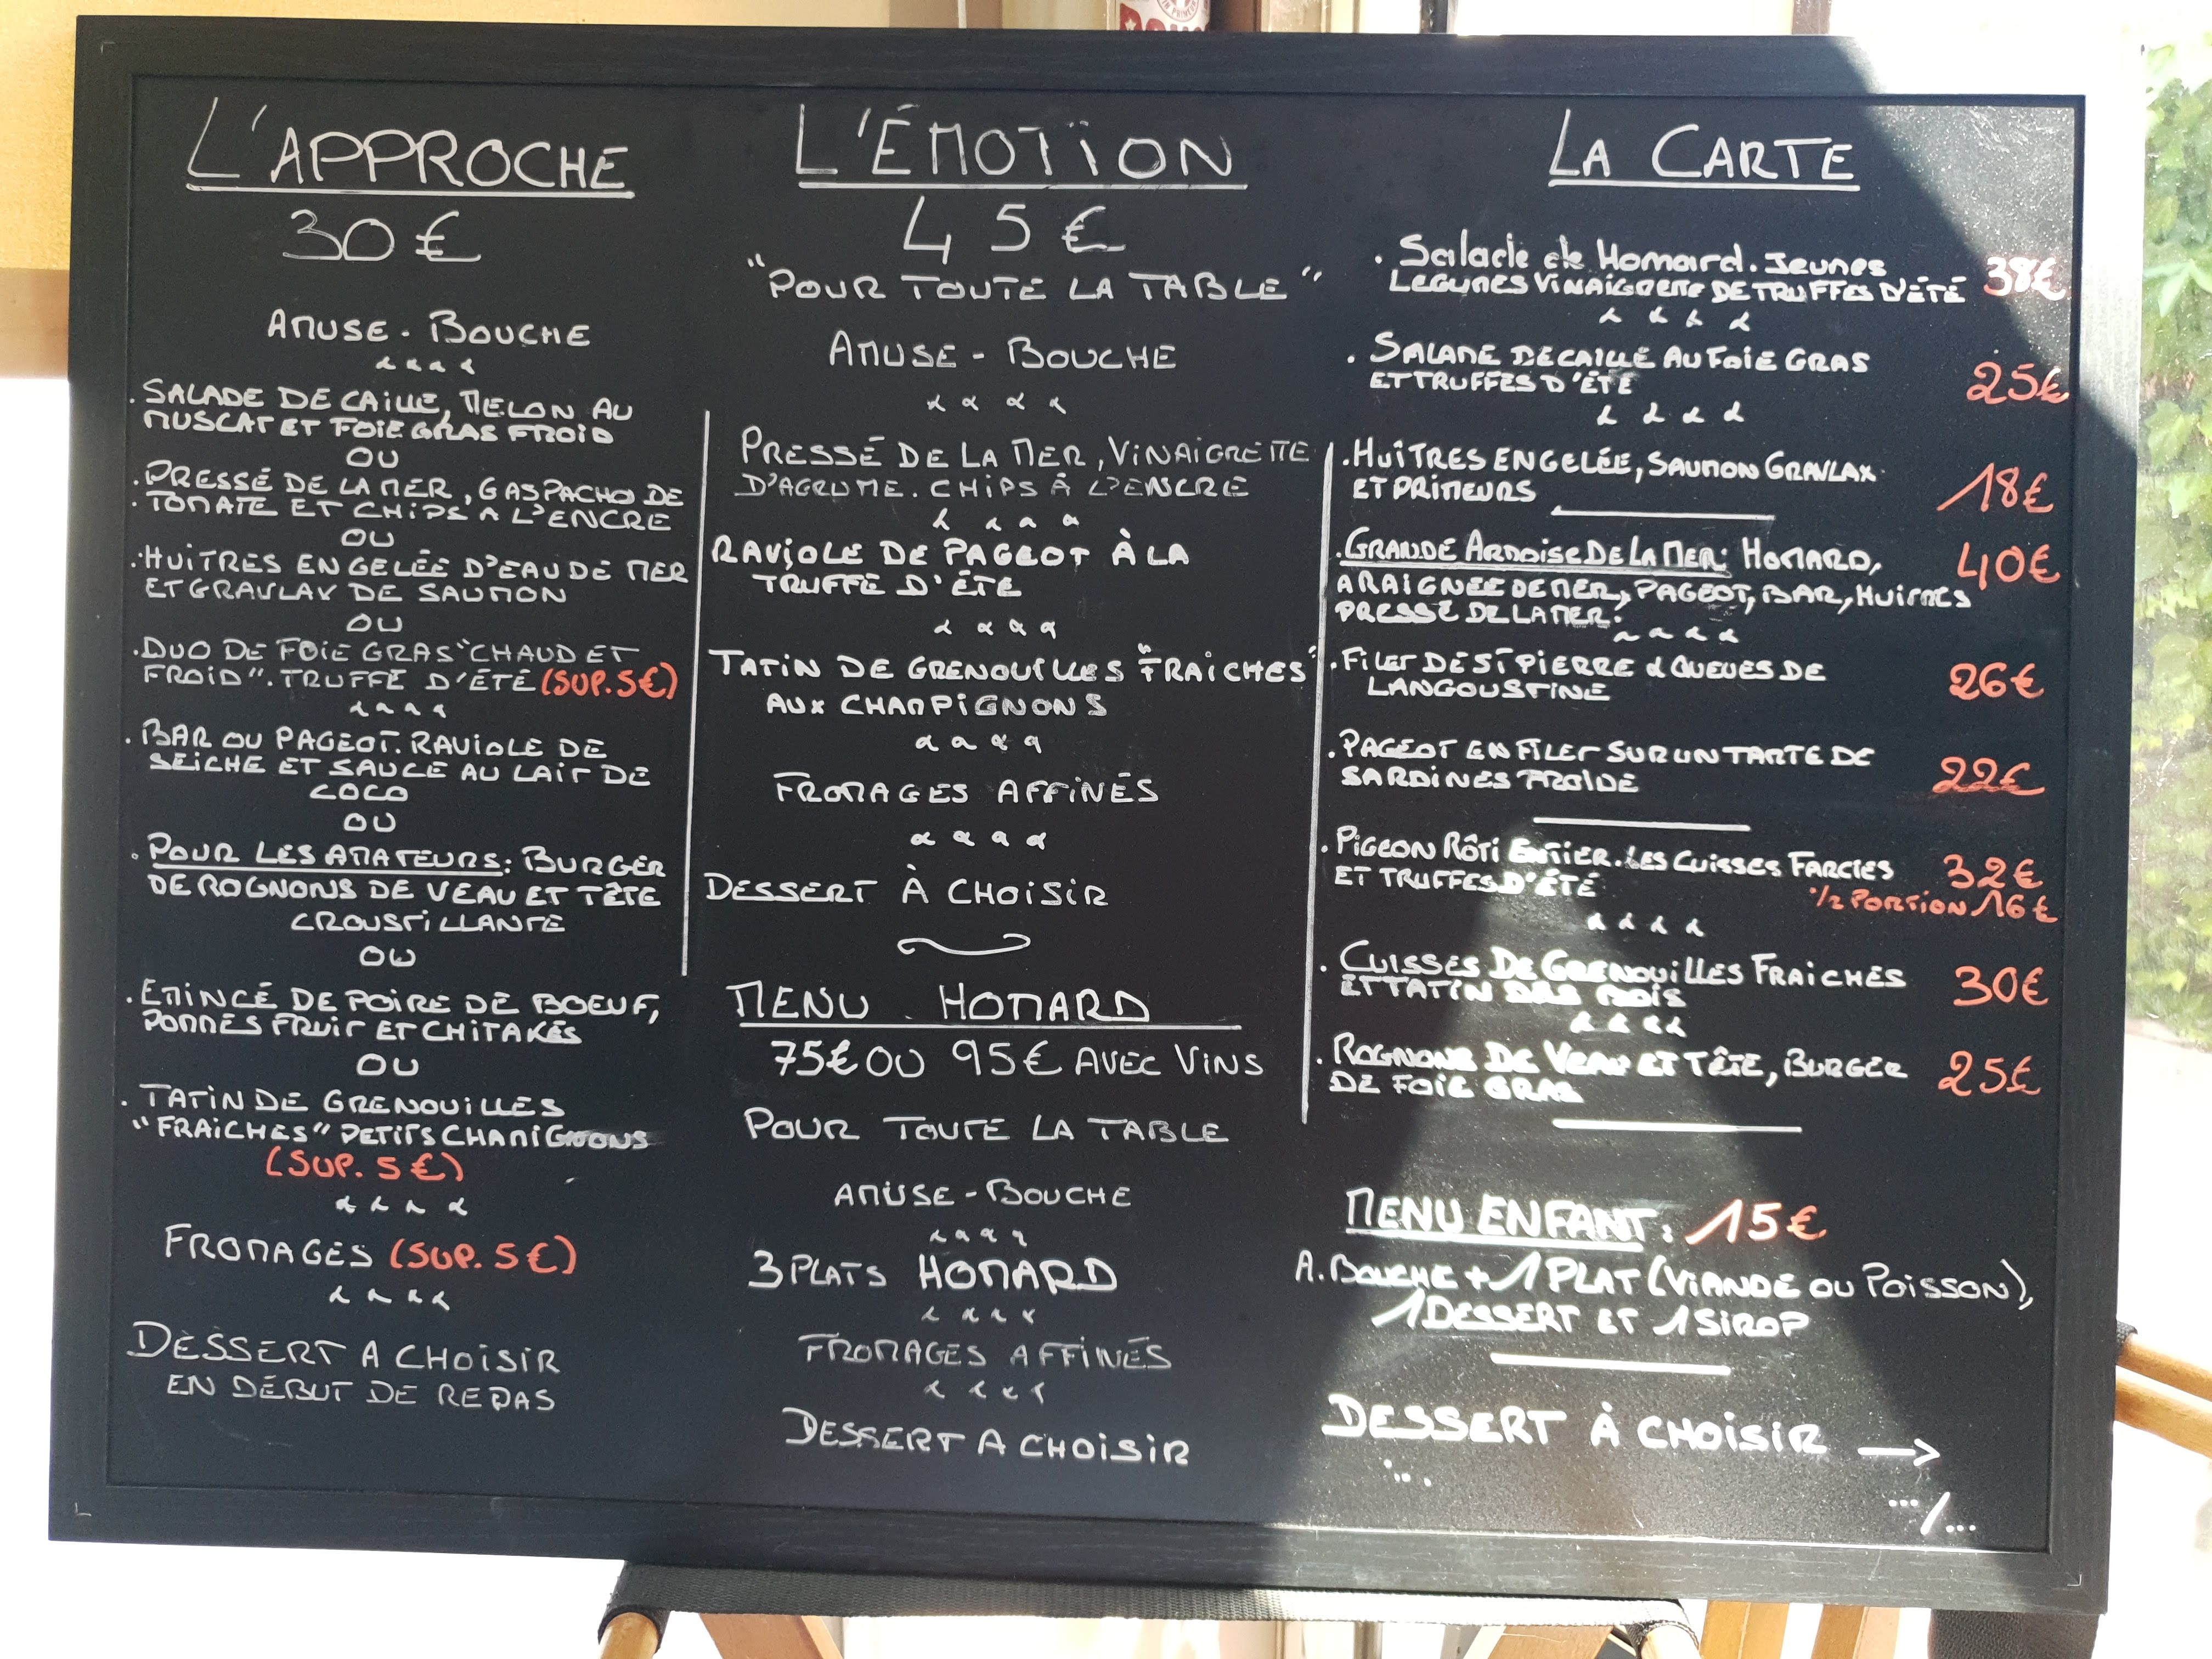 L'APPROCHE
30€
AMUSE-BOUCHE
.SALADE DE CAILLE, MELON AU
MUSCAT ET FOIE GRAS FROID
OU
.PRESSÉ DE LA MER, GASPACHO DE
.TOMATE ET CHIPS A L'ENCRE
OU
.HUITRES EN GELÉE D'EAU DE MER
ET GRAVLAX DE SAUMON
OU
.DUO DE FOIE GRAS "CHAUD ET
FROID". TRUFFE D'ÉTÉ (SUP. 5€)
.BAR OU PAGEOT. RAVIOLE DE
SEICHE ET SAUCE AU LAIT DE
COCO
OU
.POUR LES AMATEURS: BURGER
DE ROGNONS DE VEAU ET TÊTE
CROUSTILLANTE
OU
.EMINCÉ DE POIRE DE BOEUF,
POMMES FRUIT ET CHITAKÉS
OU
.TATIN DE GRENOUILLES
"FRAICHES" PETITS CHAMIGNONS
(SUP. 5€)
FROMAGES (SUP. 5€)
DESSERT A CHOISIR
EN DÉBUT DE REPAS
L'ÉMOTION
45€
"POUR TOUTE LA TABLE"
AMUSE-BOUCHE
PRESSÉ DE LA MER, VINAIGRETTE
D'AGRUME. CHIPS À L'ENCRE
RAVIOLE DE PAGEOT À LA
TRUFFE D'ÉTE
TATIN DE GRENOUILLES "FRAICHES"
AUX CHAMPIGNONS
FROMAGES AFFINÉS
DESSERT À CHOISIR
MENU HOMARD
75€ OU 95€ AVEC VINS
POUR TOUTE LA TABLE
AMUSE-BOUCHE
3 PLATS HOMARD
FROMAGES AFFINÉS
DESSERT A CHOISIR
LA CARTE
.Salade de Homard. Jeunes
LEGUMES VINAIGRETTE DE TRUFFES D'ÉTÉ 38€
.SALADE DE CAILLE AU FOIE GRAS
ET TRUFFES D'ÉTÉ 25€
.HUITRES EN GELÉE, SAUMON GRAVLAX
ET PRIMEURS 18€
.GRANDE ARDOISE DE LA MER: HOMARD, 40€
ARAIGNEE DE MER, PAGEOT, BAR, HUITRES
PRESSÉ DE LA MER.
.FILET DE ST PIERRE & QUEUES DE
LANGOUSTINE 26€
.PAGEOT EN FILET SUR UN TARTE DE
SARDINES FROIDE 22€
.PIGEON RÔTI ENTIER. LES CUISSES FARCIES
ET TRUFFES D'ÉTÉ 32€
1/2 PORTION 16€
.CUISSES DE GRENOUILLES FRAICHES
ET TATIN DES BOIS 30€
.ROGNONS DE VEAU ET TÊTE, BURGER
DE FOIE GRAS 25€
MENU ENFANT: 15€
A. BOUCHE + 1 PLAT (VIANDE OU POISSON),
1 DESSERT ET 1 SIROP
DESSERT À CHOISIR →
.../...